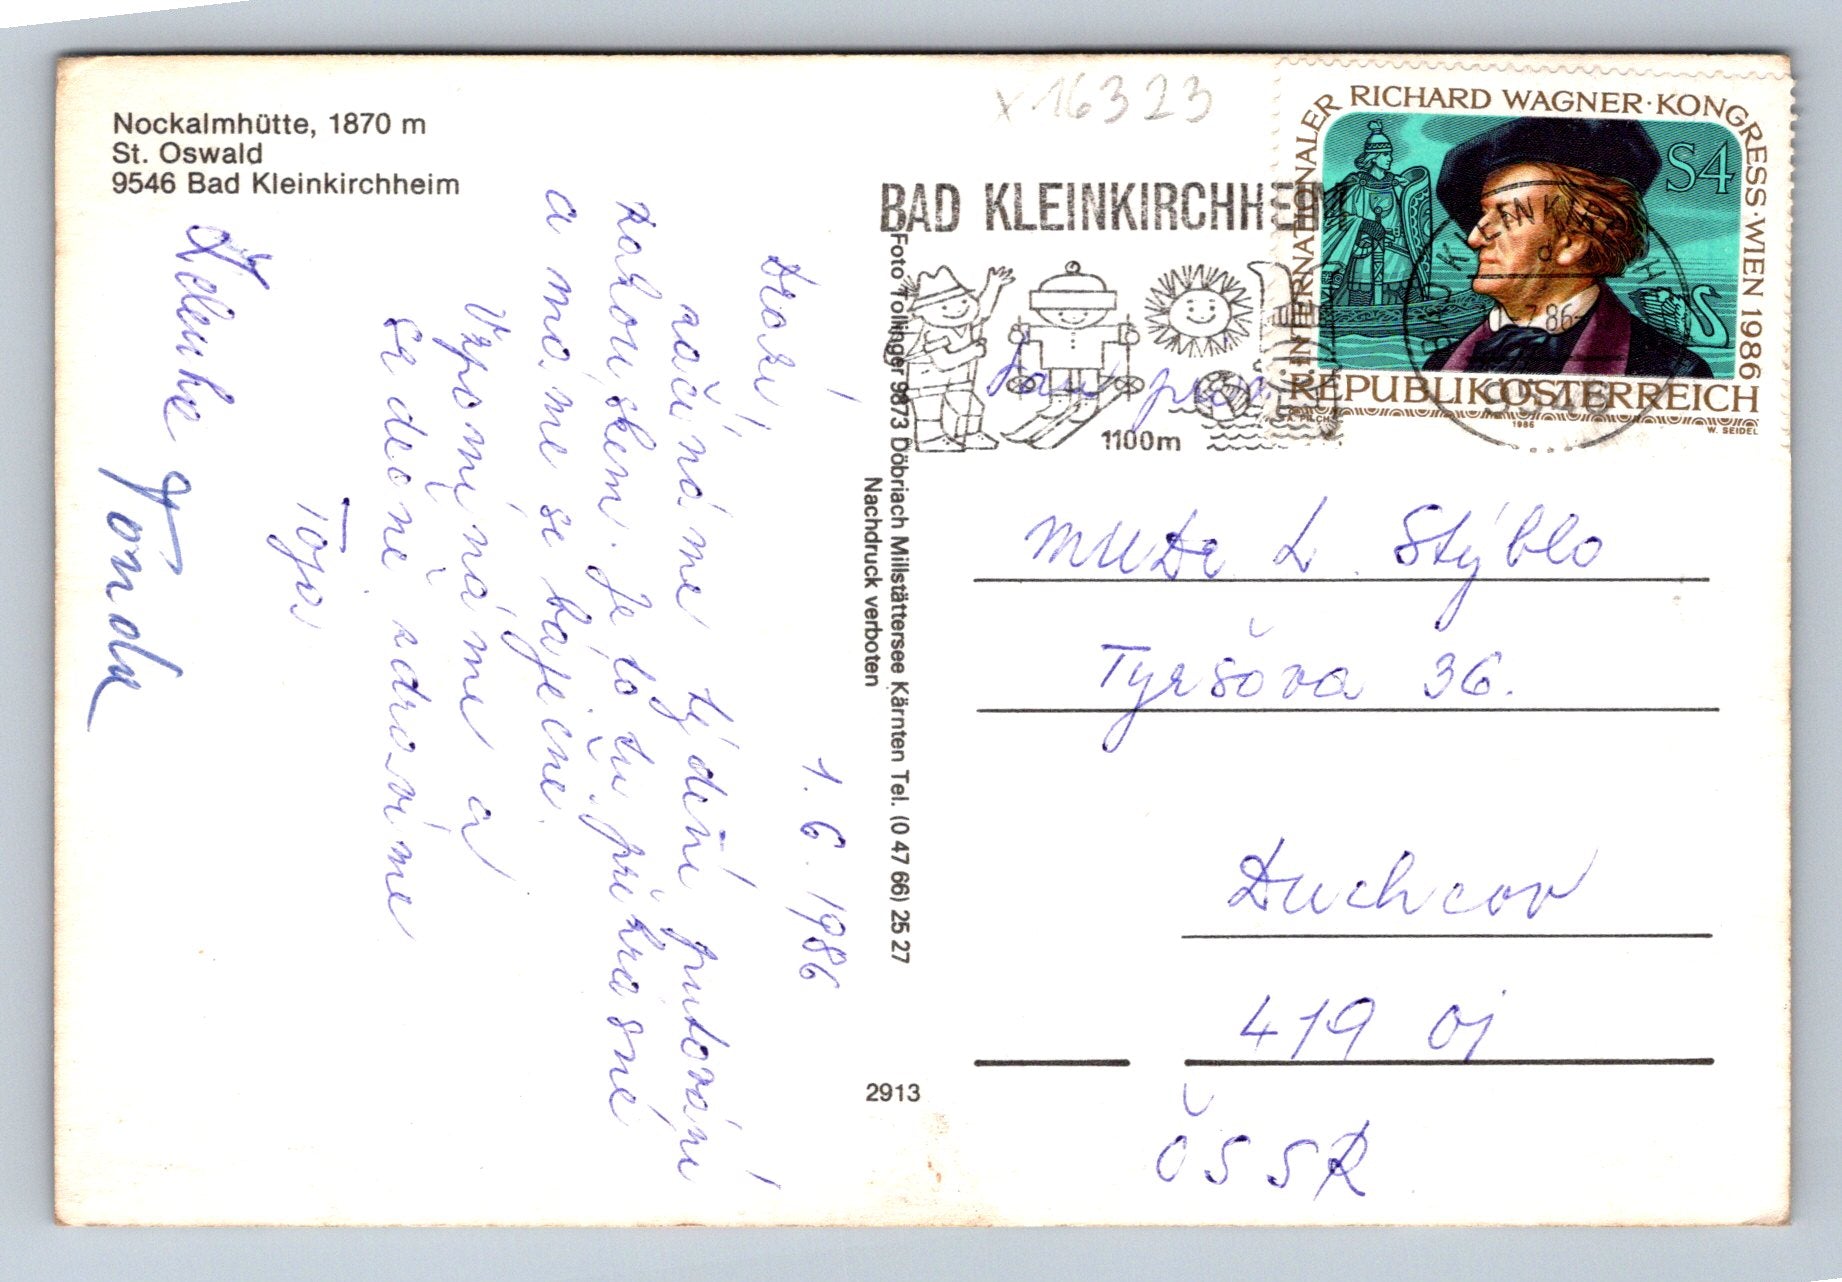 Nockalmhütte, 1870 m
St. Oswald
9546 Bad Kleinkirchheim
x 16323
BAD KLEINKIRCHHEIM
1100m
INTERNATIONALER RICHARD WAGNER·KONGRESS·WIEN 1986
S4
REPUBLIK ÖSTERREICH
1986
W. SEIDEL
1. 6. 1986
Drazí,
začínáme týdenní putování
Korouškem. Je to tu překrásné
a máme se báječně.
Vzpomínáme a
srdečně zdravíme
Toja
Zdenka Tonda
Foto Tollinger 9873 Döbriach Millstättersee Kärnten Tel. (0 47 66) 25 27
Nachdruck verboten
2913
MUDr L. Stýblo
Tyršova 36.
Duchcov
419 01
ČSSR